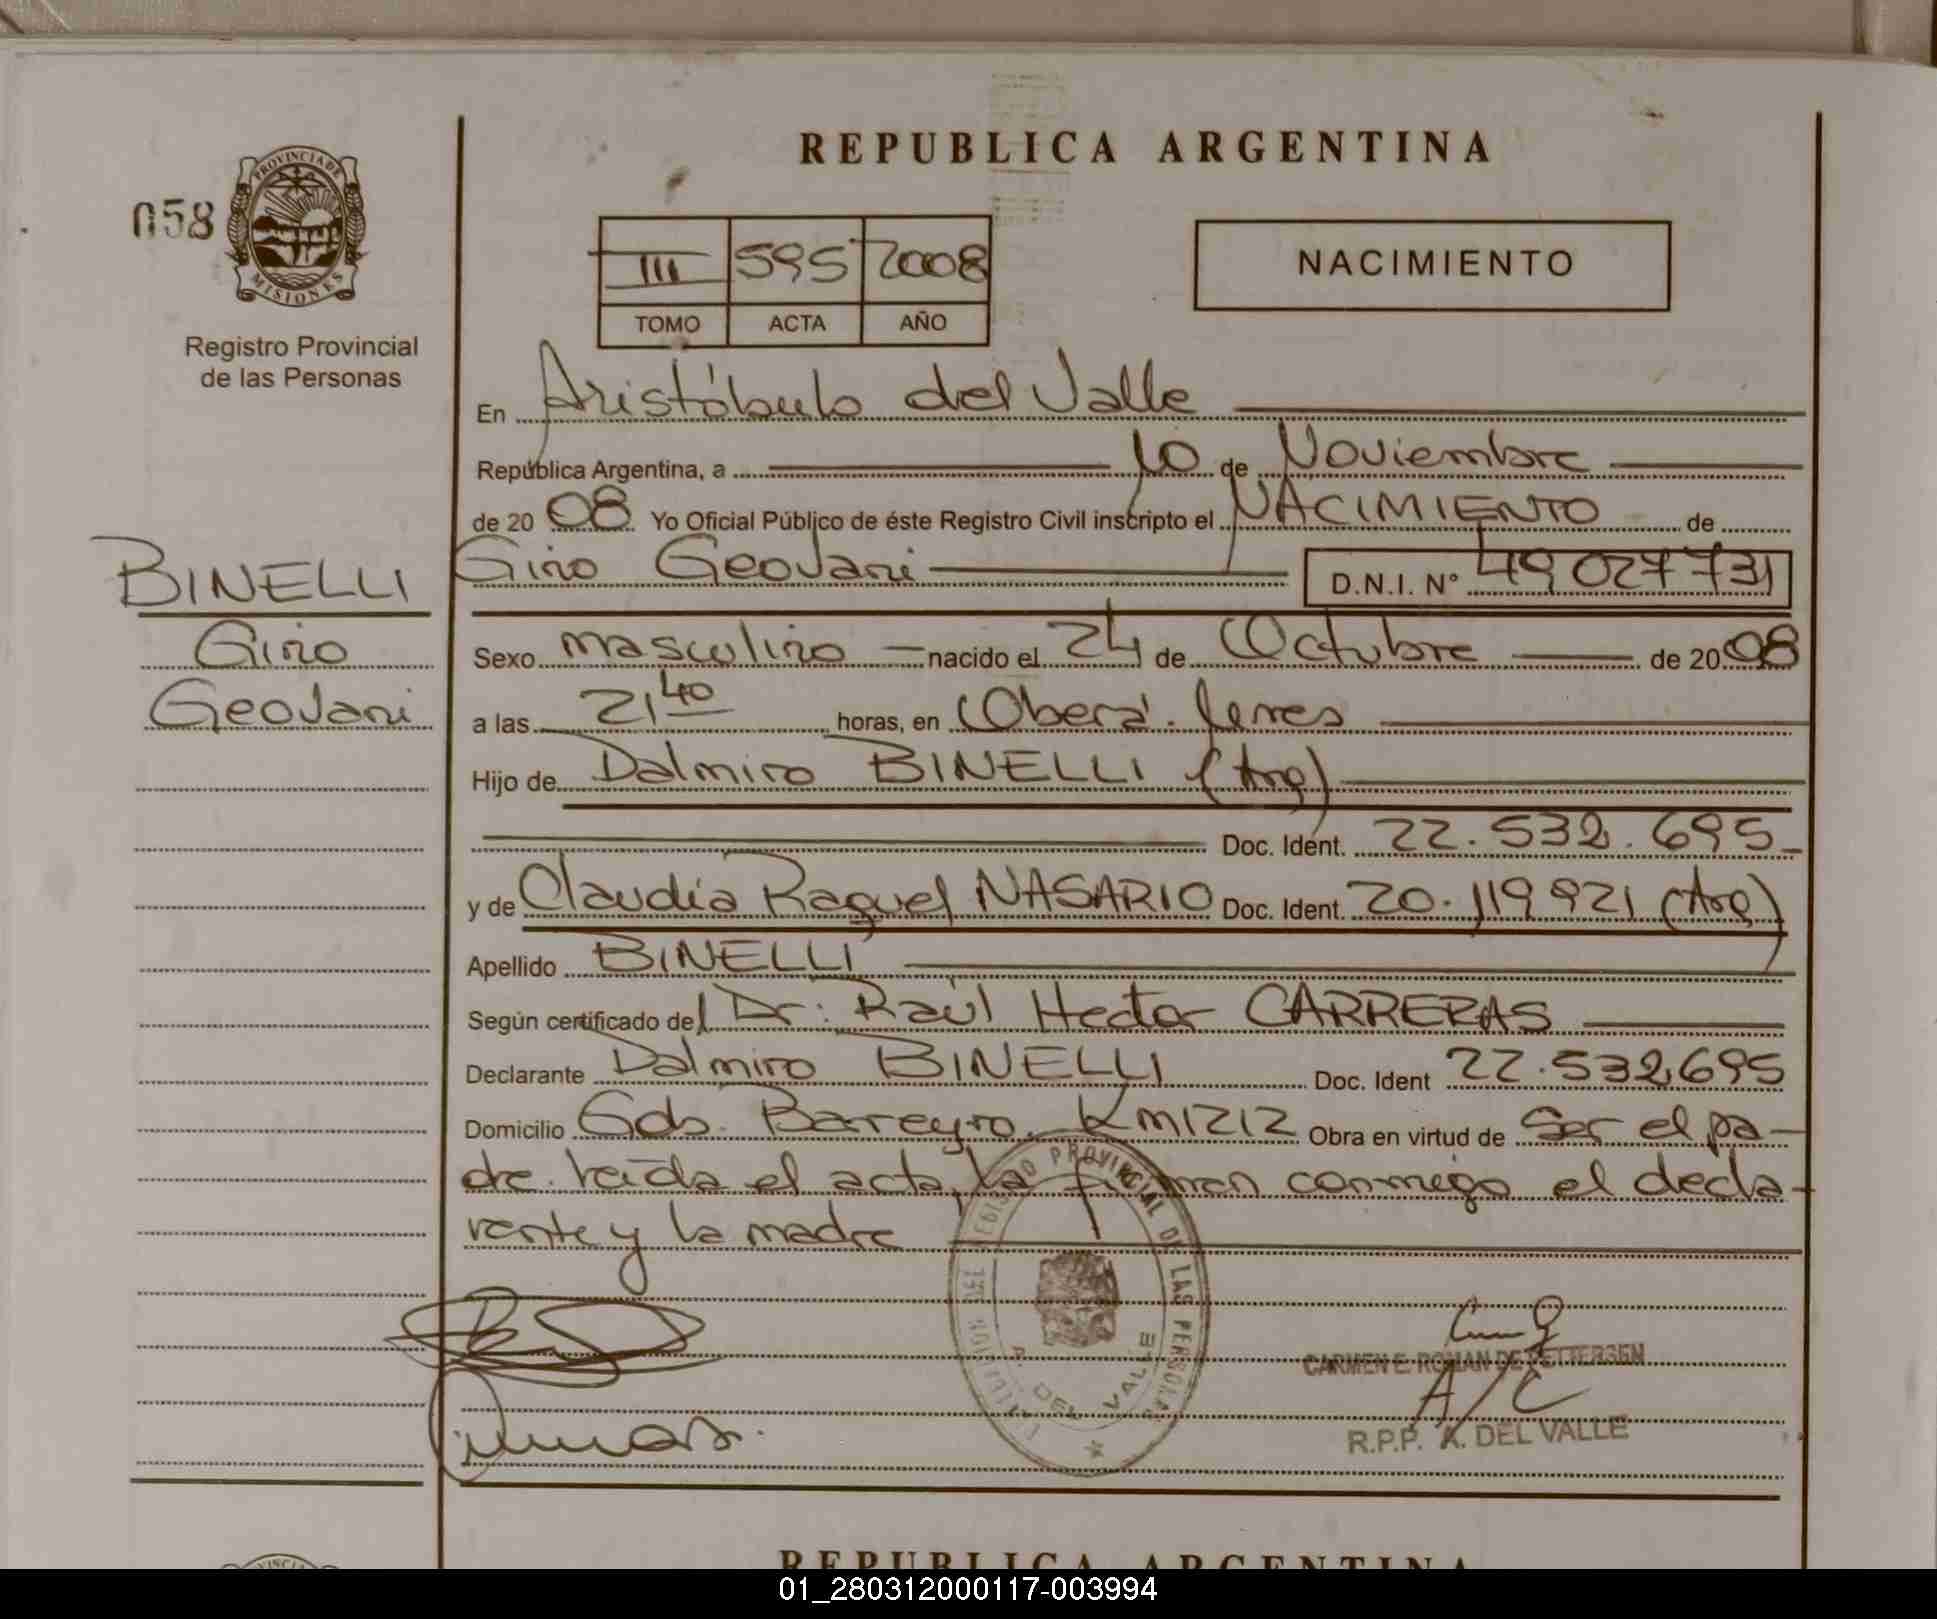 REPUBLICA ARGENTINA
058
PROVINCIA DE
MISIONES
Registro Provincial
de las Personas
III 595 2008
TOMO ACTA AÑO
NACIMIENTO
En Aristóbulo del Valle
República Argentina, a 10 de Noviembre
de 20 08 Yo Oficial Público de éste Registro Civil inscripto el NACIMIENTO de
BINELLI
Gino
Geovani
Gino Geovani D.N.I. N° 49027731
Sexo masculino nacido el 24 de Octubre de 20 08
a las 21,40 horas, en Oberá.
Hijo de Dalmiro BINELLI (Arg)
Doc. Ident. 22.532.695
y de Claudia Raquel NASARIO Doc. Ident. 20.119921 (Arg)
Apellido BINELLI
Según certificado del Dr: Raúl Hector CARRERAS
Declarante Dalmiro BINELLI Doc. Ident 22.532695
Domicilio Gdo. Barreyro. Km1212 Obra en virtud de Ser el pa-
dre. leída el acta, la firman conmigo el decla-
rante y la madre
REGISTRO PROVINCIAL DE LAS PERSONAS
A. DEL VALLE
CARMEN E. ROMAN DE PETTERSEN
A/C
R.P.P. A. DEL VALLE
REPUBLICA ARGENTINA
01_280312000117-003994